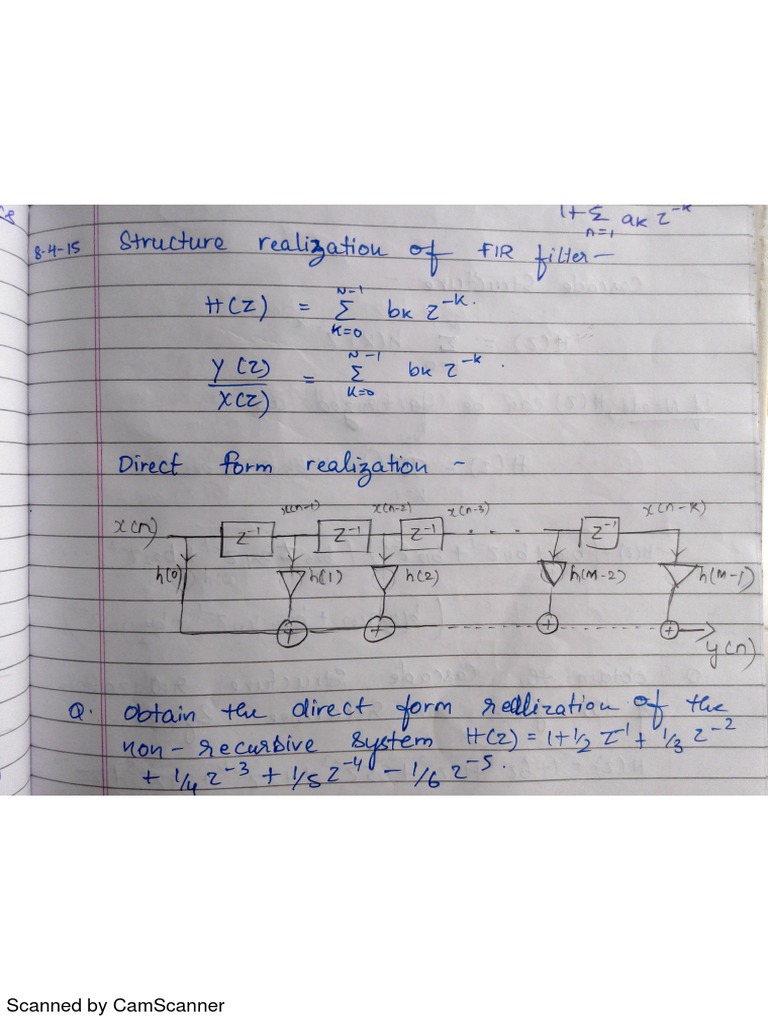 1+ Σ ak z^-k
n=1
8-4-15 Structure realization of FIR filter —
N-1
H(z) = Σ bk z^-k.
k=0
N-1
Y(z)/X(z) = Σ bk z^-k.
k=0
Direct form realization ~
x(n-1) x(n-2) x(n-3) x(n-k)
x(n) z^-1 z^-1 z^-1 . . . z^-1
h(0) h(1) h(2) h(M-2) h(M-1)
+ + + +
y(n)
Q. Obtain the direct form realization of the
non-recursive system H(z) = 1+1/2 z^-1 + 1/3 z^-2
+ 1/4 z^-3 + 1/5 z^-4 - 1/6 z^-5.
Scanned by CamScanner